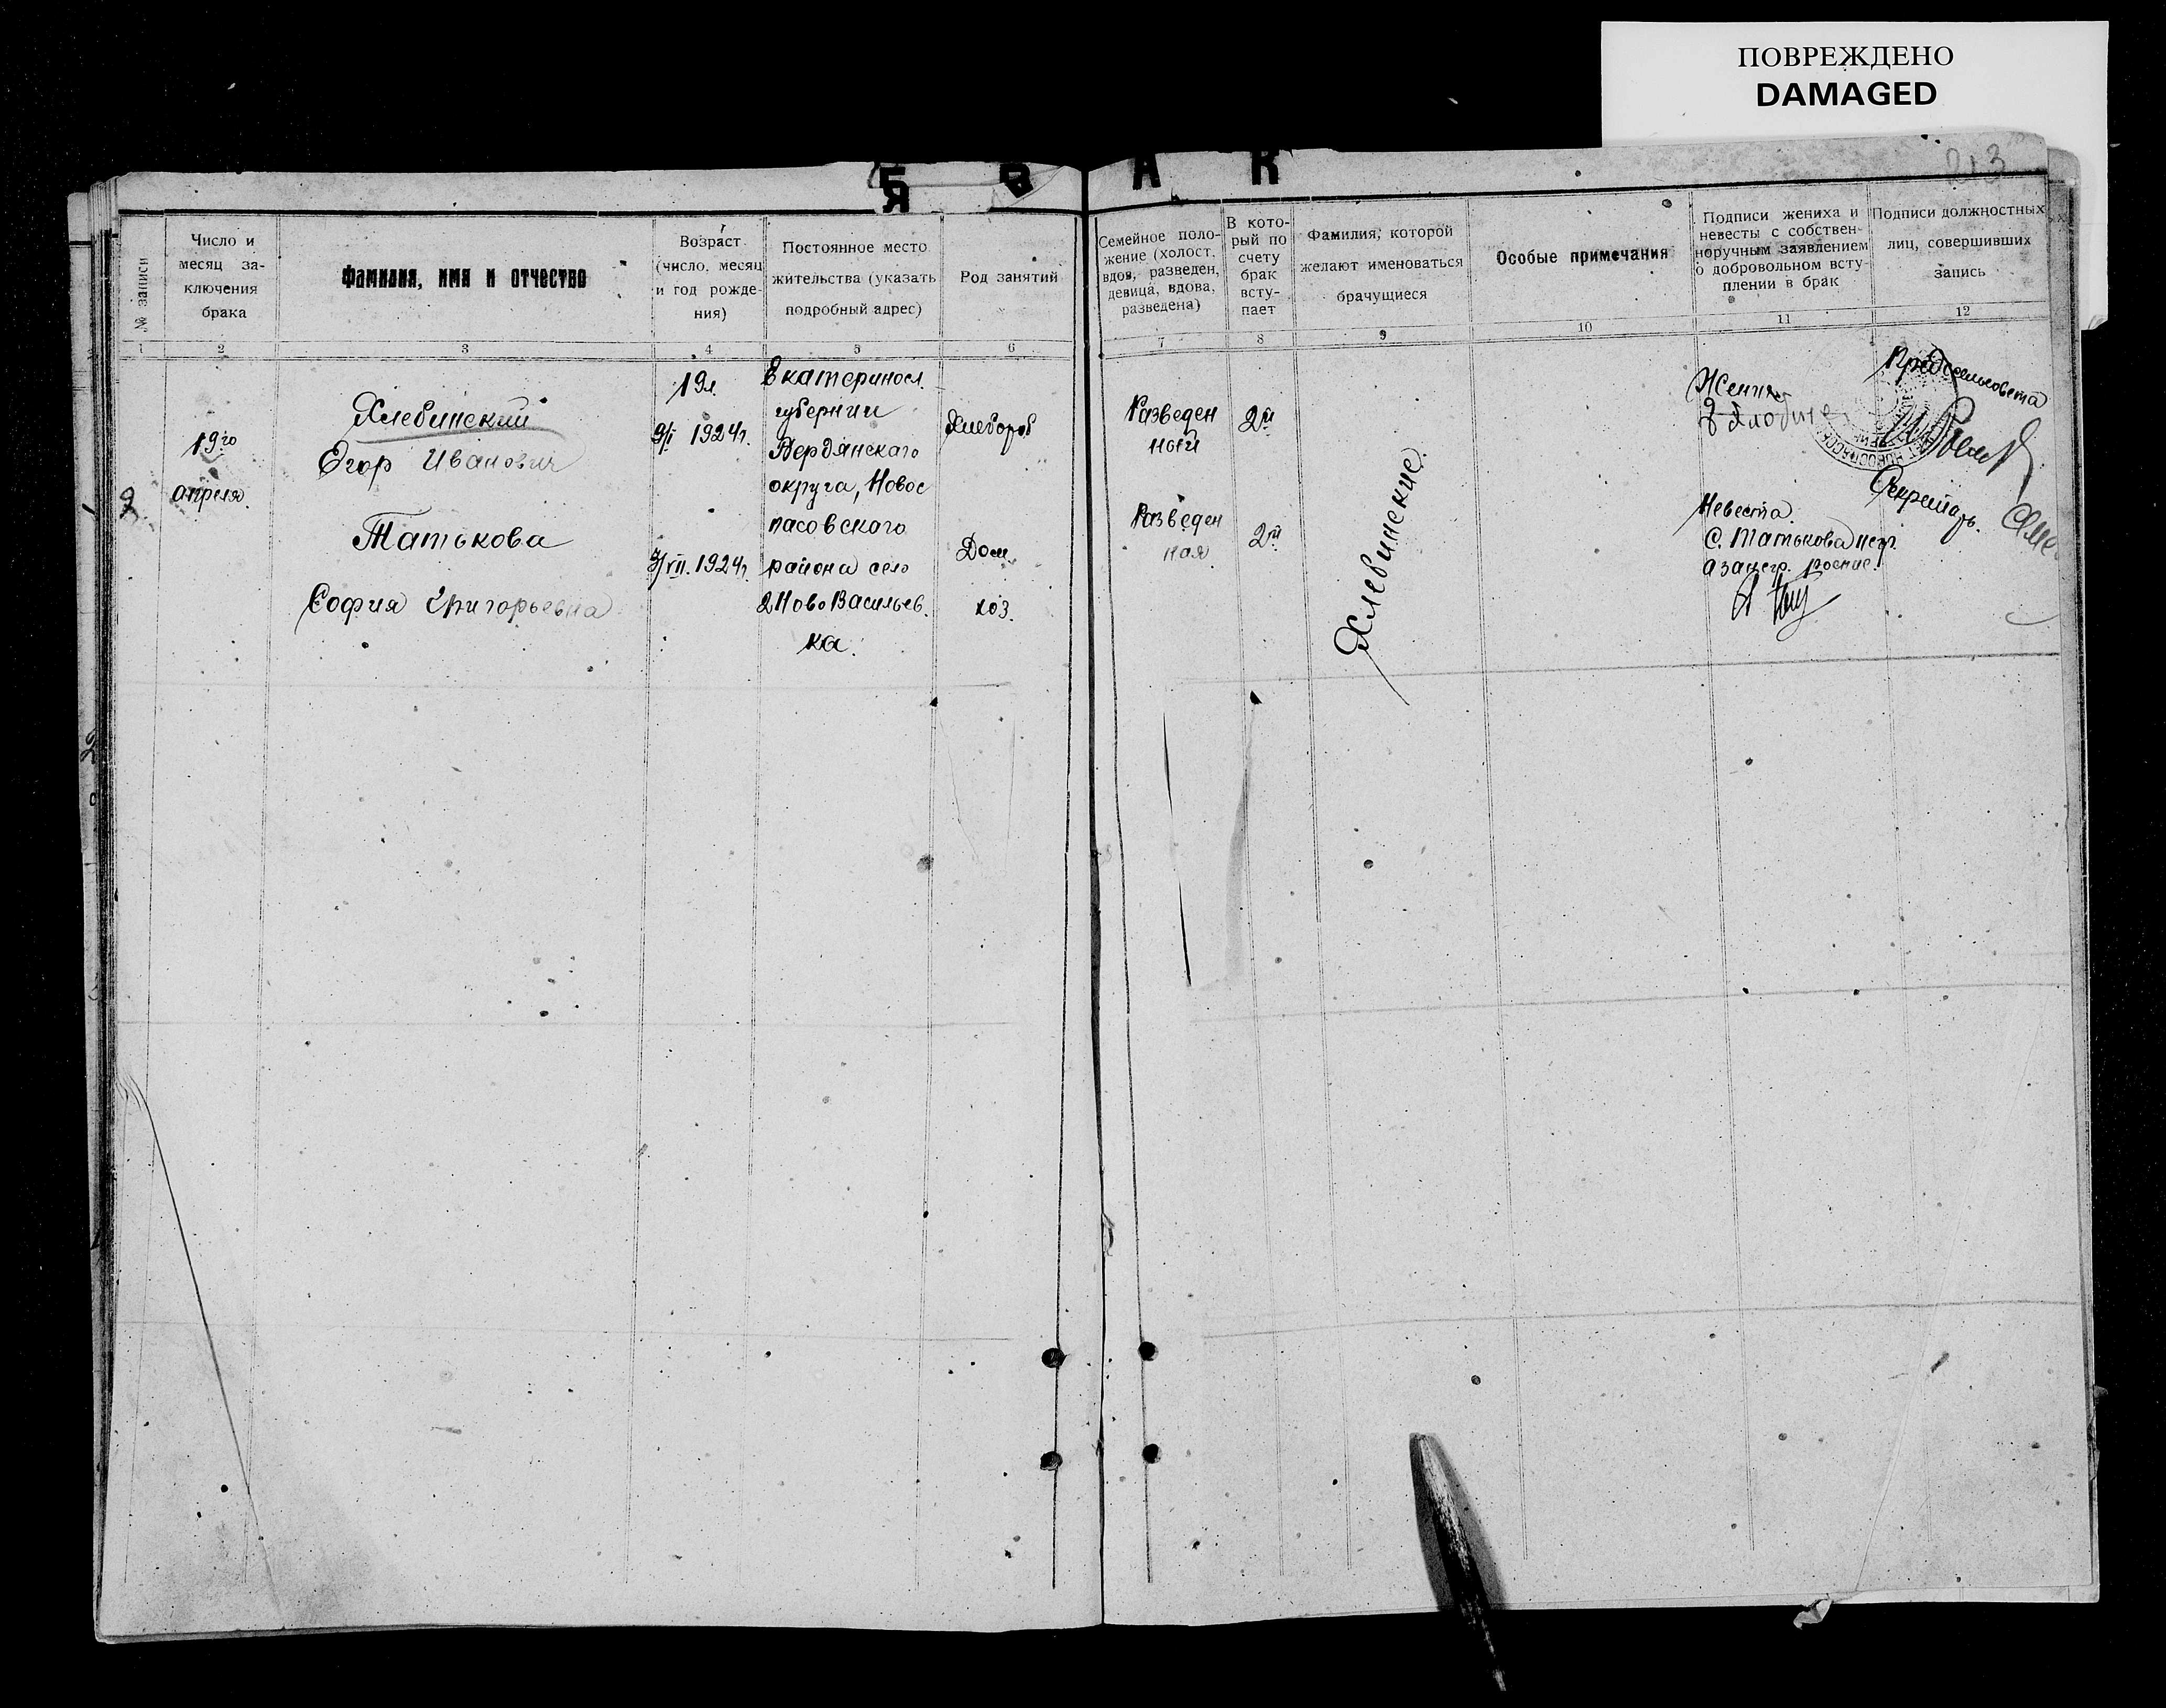 ПОВРЕЖДЕНО
DAMAGED
213
Б В А К
Я
№ записи
Число и
месяц за-
ключения
брака
Фамилия, имя и отчество
Возраст
(число, месяц
и год рожде-
ния)
Постоянное место
жительства (указать
подробный адрес)
Род занятий
Семейное поло-
жение (холост,
вдов, разведен,
девица, вдова,
разведена)
В кото-
рый по
счету
брак
всту-
пает
Фамилия, которой
желают именоваться
брачущиеся
Особые примечания
Подписи жениха и
невесты с собствен-
норучным заявлением
о добровольном всту-
плении в брак
Подписи должностных
лиц, совершивших
запись
1 2 3 4 5 6 7 8 9 10 11 12
19го
апреля
Хлебинский
Егор Иванович
Татькова
София Григорьевна
19л.
9/I 1924г.
3/VII. 1924г.
Екатериносл.
губернии
Бердянского
округа, Новос
пасовского
района село
2 Ново Васильев.
ка.
Хлебороб
Дом.
хоз.
Разведен
ный
Разведен
ная
2й
2й
Хлевинские
Жених
Невеста
С. Татькова негр.
а за негр. роспис.
Предсельсовета
Секретарь